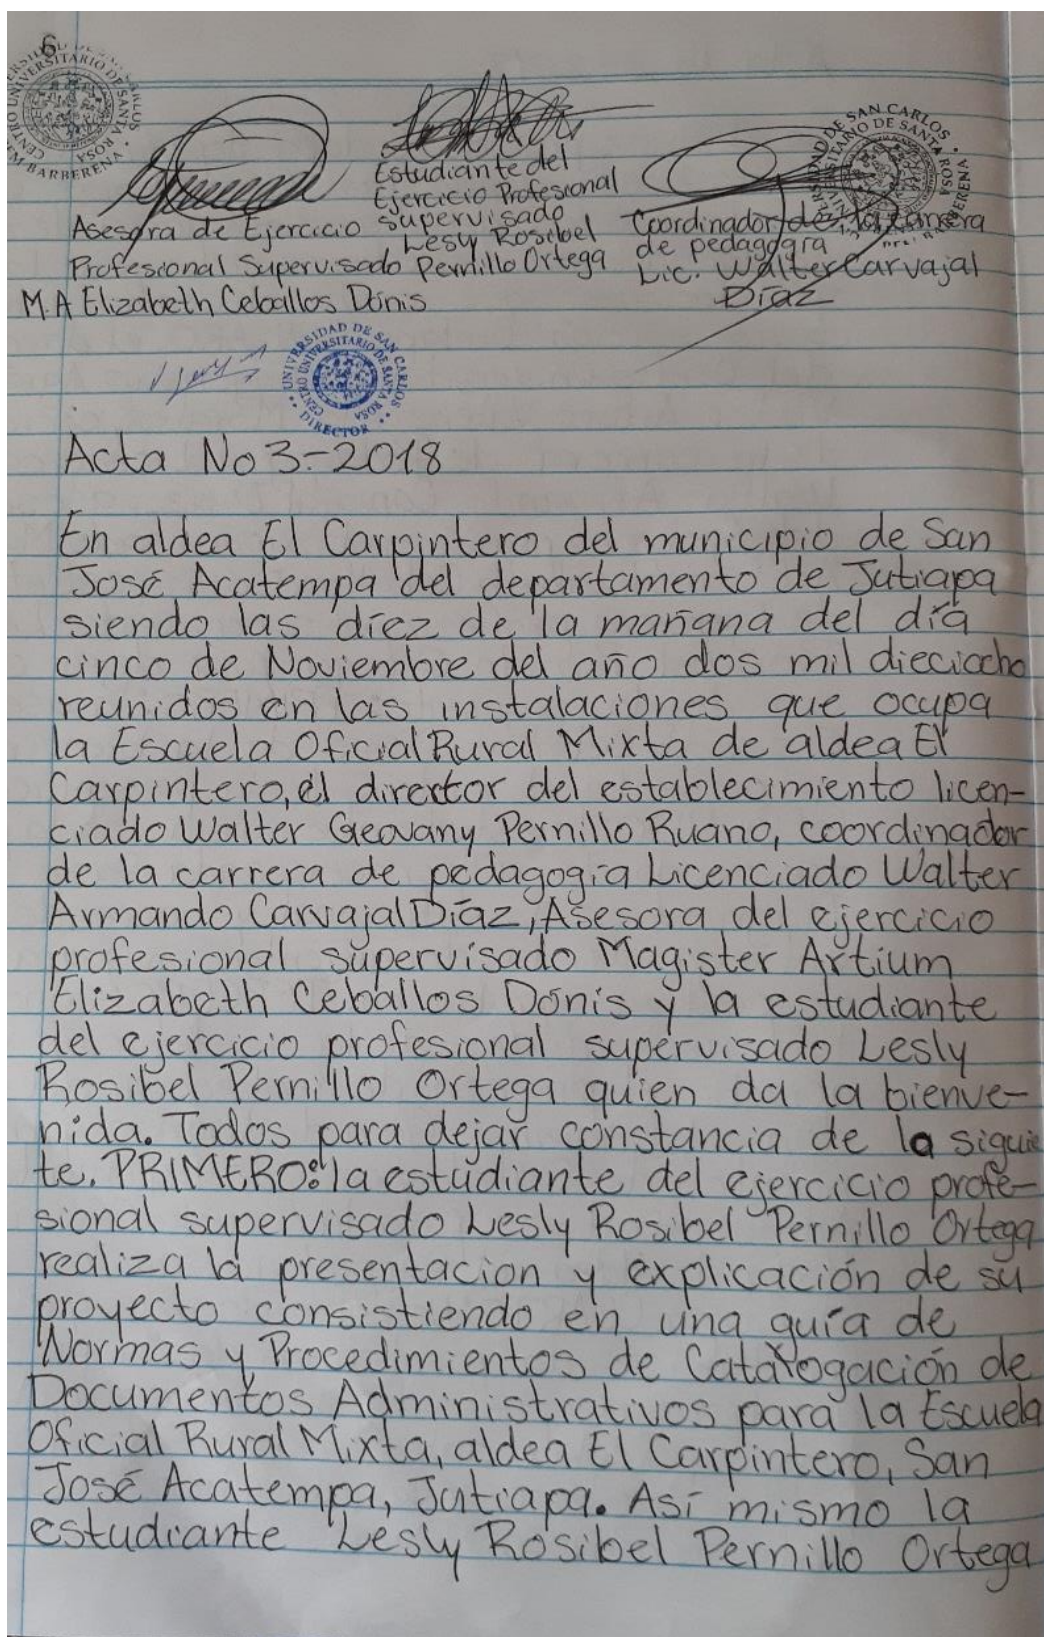 6
Estudiante del
Ejercicio Profesional
supervisado
Lesly Rosibel
Pernillo Ortega
Asesora de Ejercicio
Profesional Supervisado
M.A Elizabeth Ceballos Dónis
Coordinador de la carrera
de pedagogía
Lic. Walter Carvajal
Díaz
UNIVERSIDAD DE SAN CARLOS
CENTRO UNIVERSITARIO DE SANTA ROSA
DIRECTOR
Acta No 3-2018
En aldea El Carpintero del municipio de San
José Acatempa del departamento de Jutiapa
siendo las díez de la mañana del día
cinco de Noviembre del año dos mil dieciocho
reunidos en las instalaciones que ocupa
la Escuela Oficial Rural Mixta de aldea El
Carpintero, el director del establecimiento licen-
ciado Walter Geovany Pernillo Ruano, coordinador
de la carrera de pedagogía Licenciado Walter
Armando Carvajal Díaz, Asesora del ejercicio
profesional supervisado Magister Artium
Elizabeth Ceballos Dónis y la estudiante
del ejercicio profesional supervisado Lesly
Rosibel Pernillo Ortega quien da la bienve-
nida. Todos para dejar constancia de lo siguie
te. PRIMERO: la estudiante del ejercicio profe-
sional supervisado Lesly Rosibel Pernillo Ortega
realiza la presentacion y explicación de su
proyecto consistiendo en una guía de
Normas y Procedimientos de Catalogación de
Documentos Administrativos para la Escuela
Oficial Rural Mixta, aldea El Carpintero, San
José Acatempa, Jutiapa. Así mismo la
estudiante Lesly Rosibel Pernillo Ortega